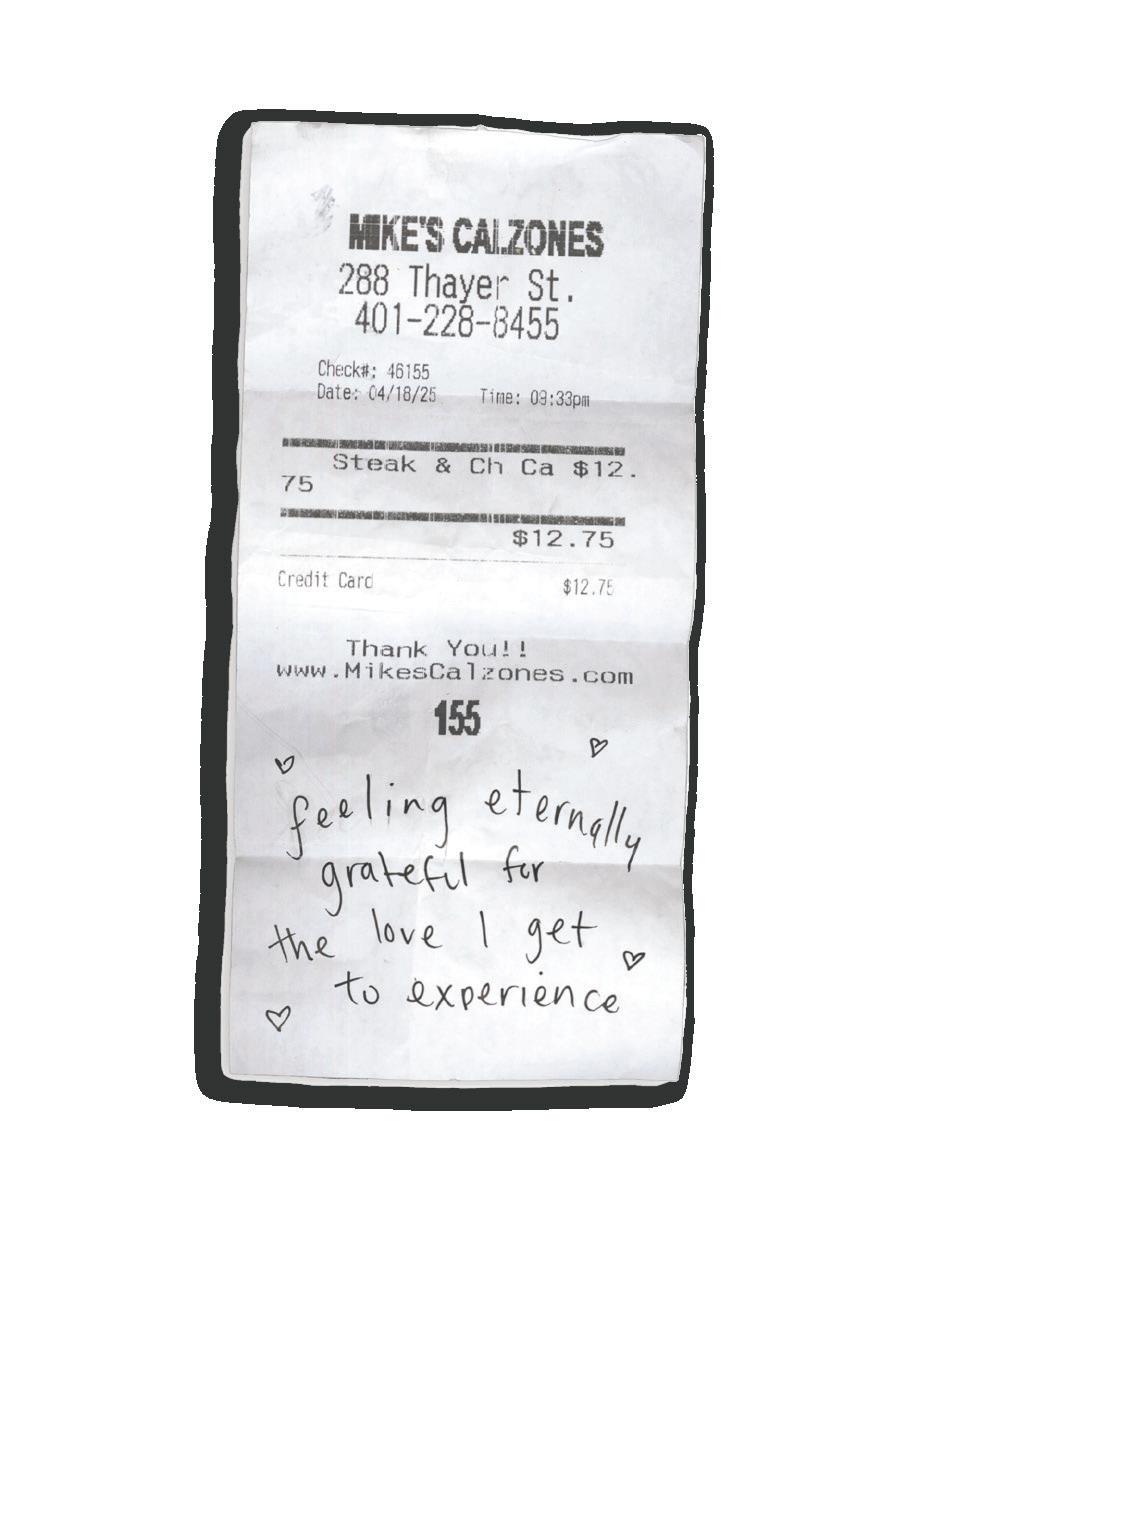 MIKE'S CALZONES
288 Thayer St.
401-228-8455
Check#: 46155
Date: 04/18/25 Time: 09:33pm
Steak & Ch Ca $12.
75
$12.75
Credit Card $12.75
Thank You!!
www.MikesCalzones.com
155
feeling eternally
grateful for
the love I get
to experience